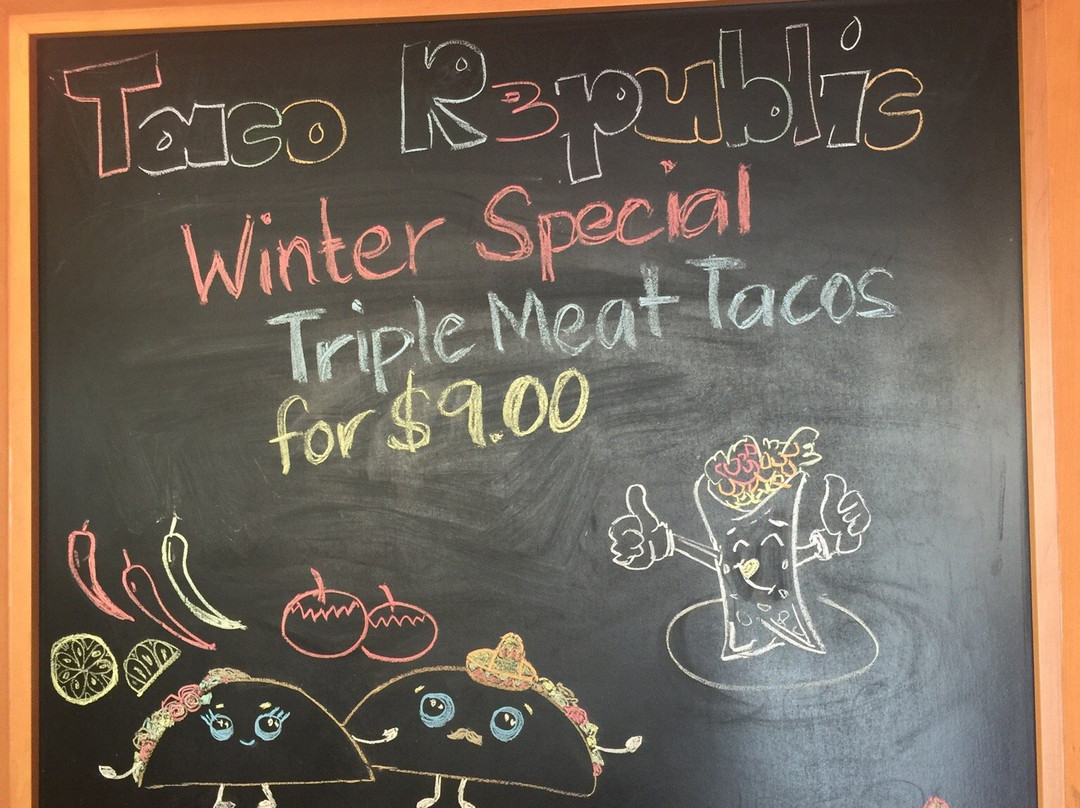 Taco Republic
Winter Special
Triple Meat Tacos
for $9.00